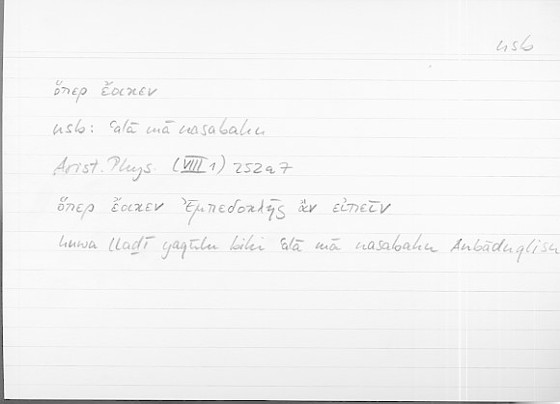 nsb
ὅπερ ἔοικεν
nsb: ʿalā mā nasabahu
Arist. Phys. (VIII 1) 252a7
ὅπερ ἔοικεν Ἐμπεδοκλῆς ἂν εἰπεῖν
huwa llaḏī yaqūlu bihi ʿalā mā nasabahu Anbāduqlisu